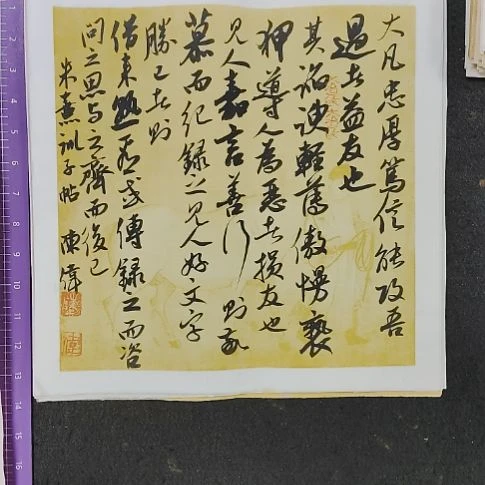 大凡忠厚篤信能攻吾
過者益友也
其諂諛輕薄傲慢褻
狎導人為惡者損友也
見人嘉言善行則敬
慕而紀錄之見人好文字
勝己者則
借來熟看或傳錄之而咨
問之思與之齊而後已
朱熹訓子帖 陳偉